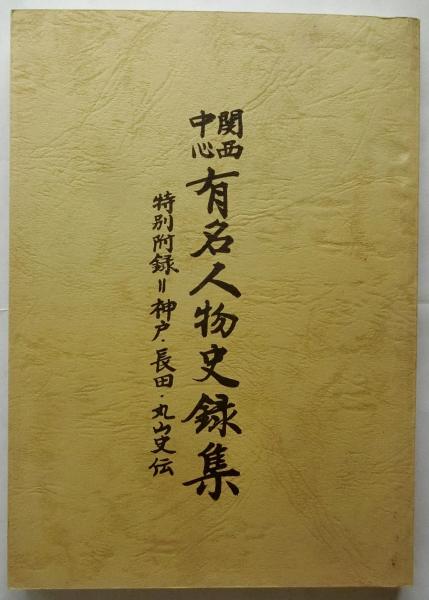 関西
中心
有名人物史録集
特別附録＝神戸・長田・丸山史伝